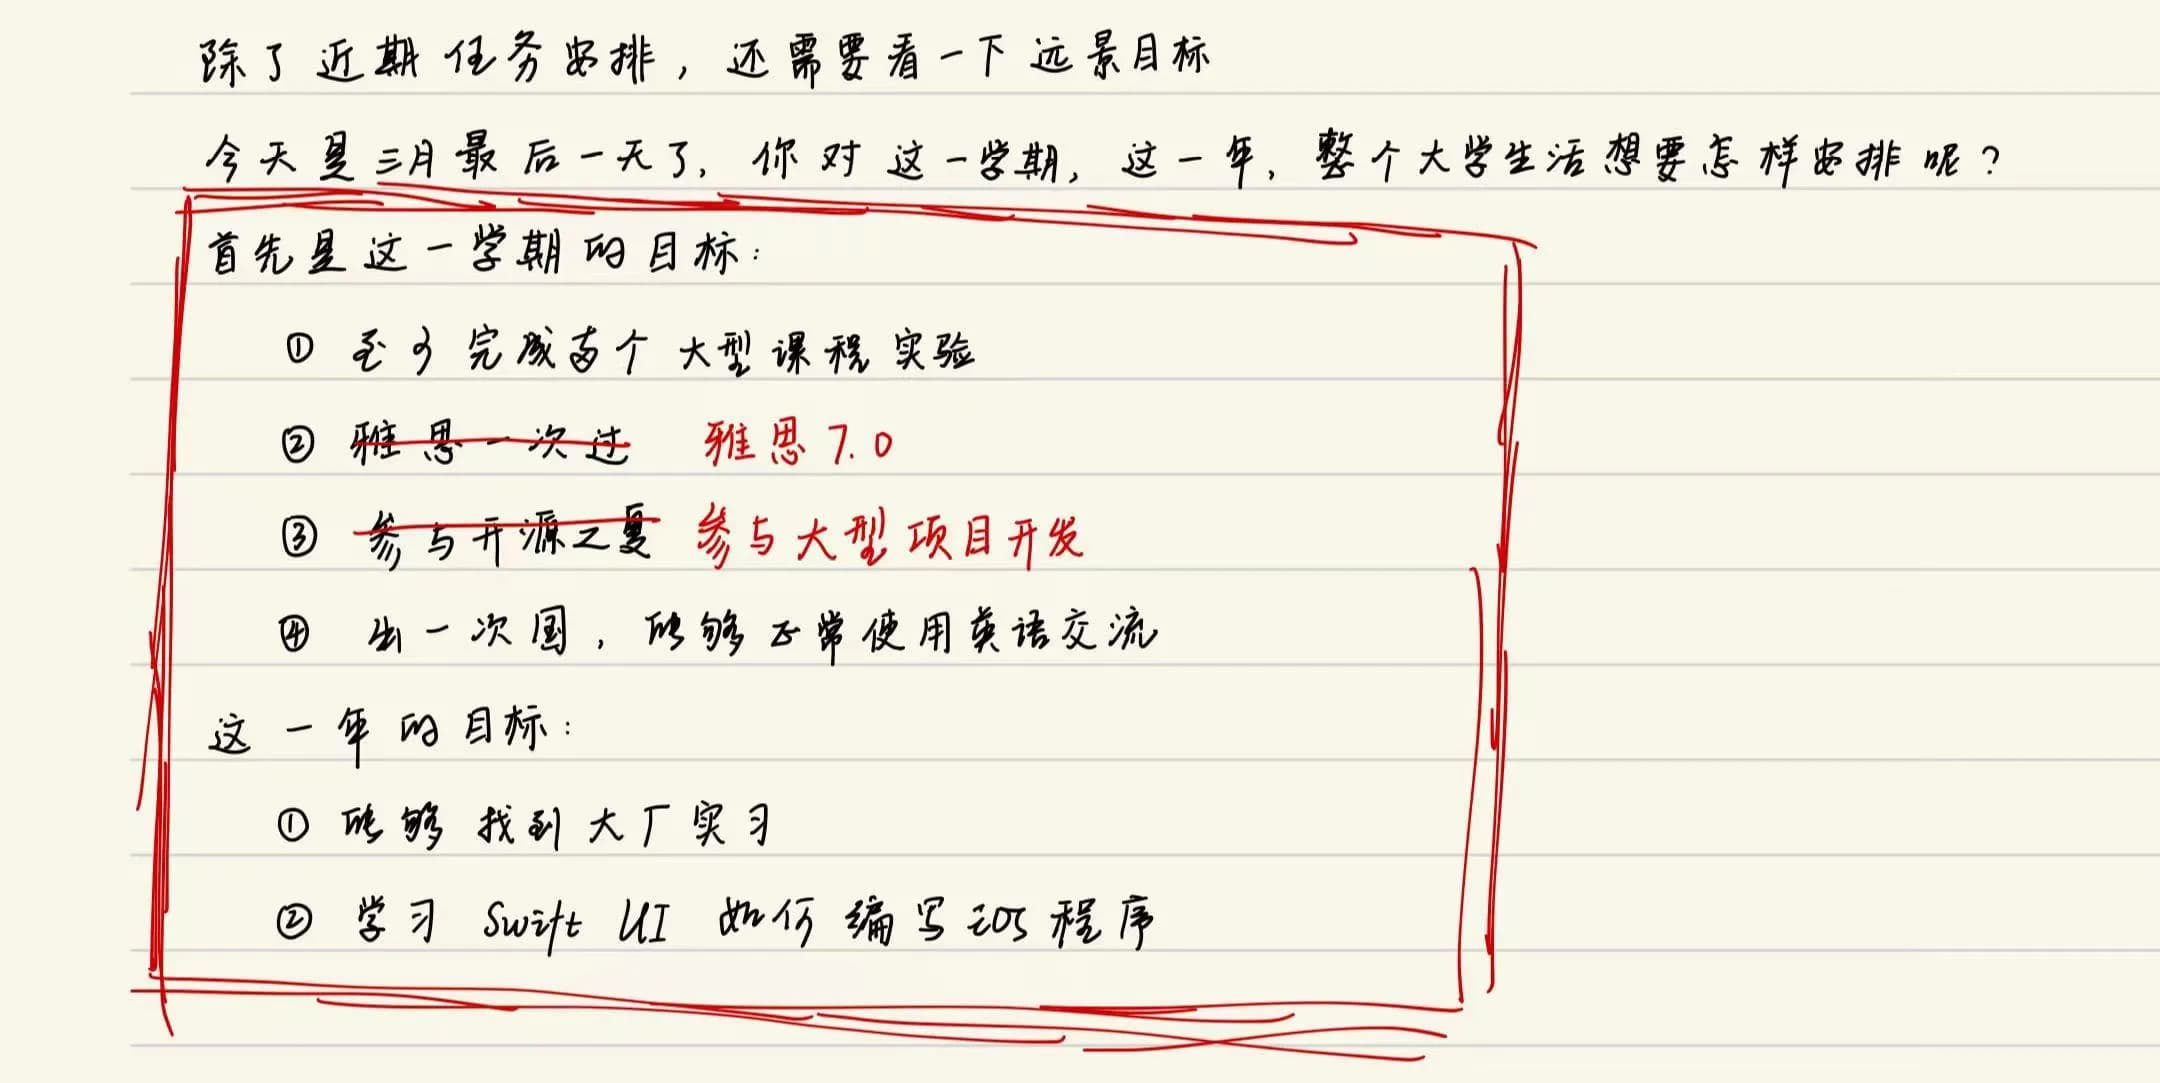 除了近期任务安排，还需要看一下远景目标
今天是三月最后一天了，你对这一学期，这一年，整个大学生活想要怎样安排呢？
首先是这一学期的目标：
① 至少完成两个大型课程实验
② 雅思一次过 雅思7.0
③ 参与开源之夏 参与大型项目开发
④ 出一次国，能够正常使用英语交流
这一年的目标：
① 能够找到大厂实习
② 学习 Swift UI 如何编写iOS程序